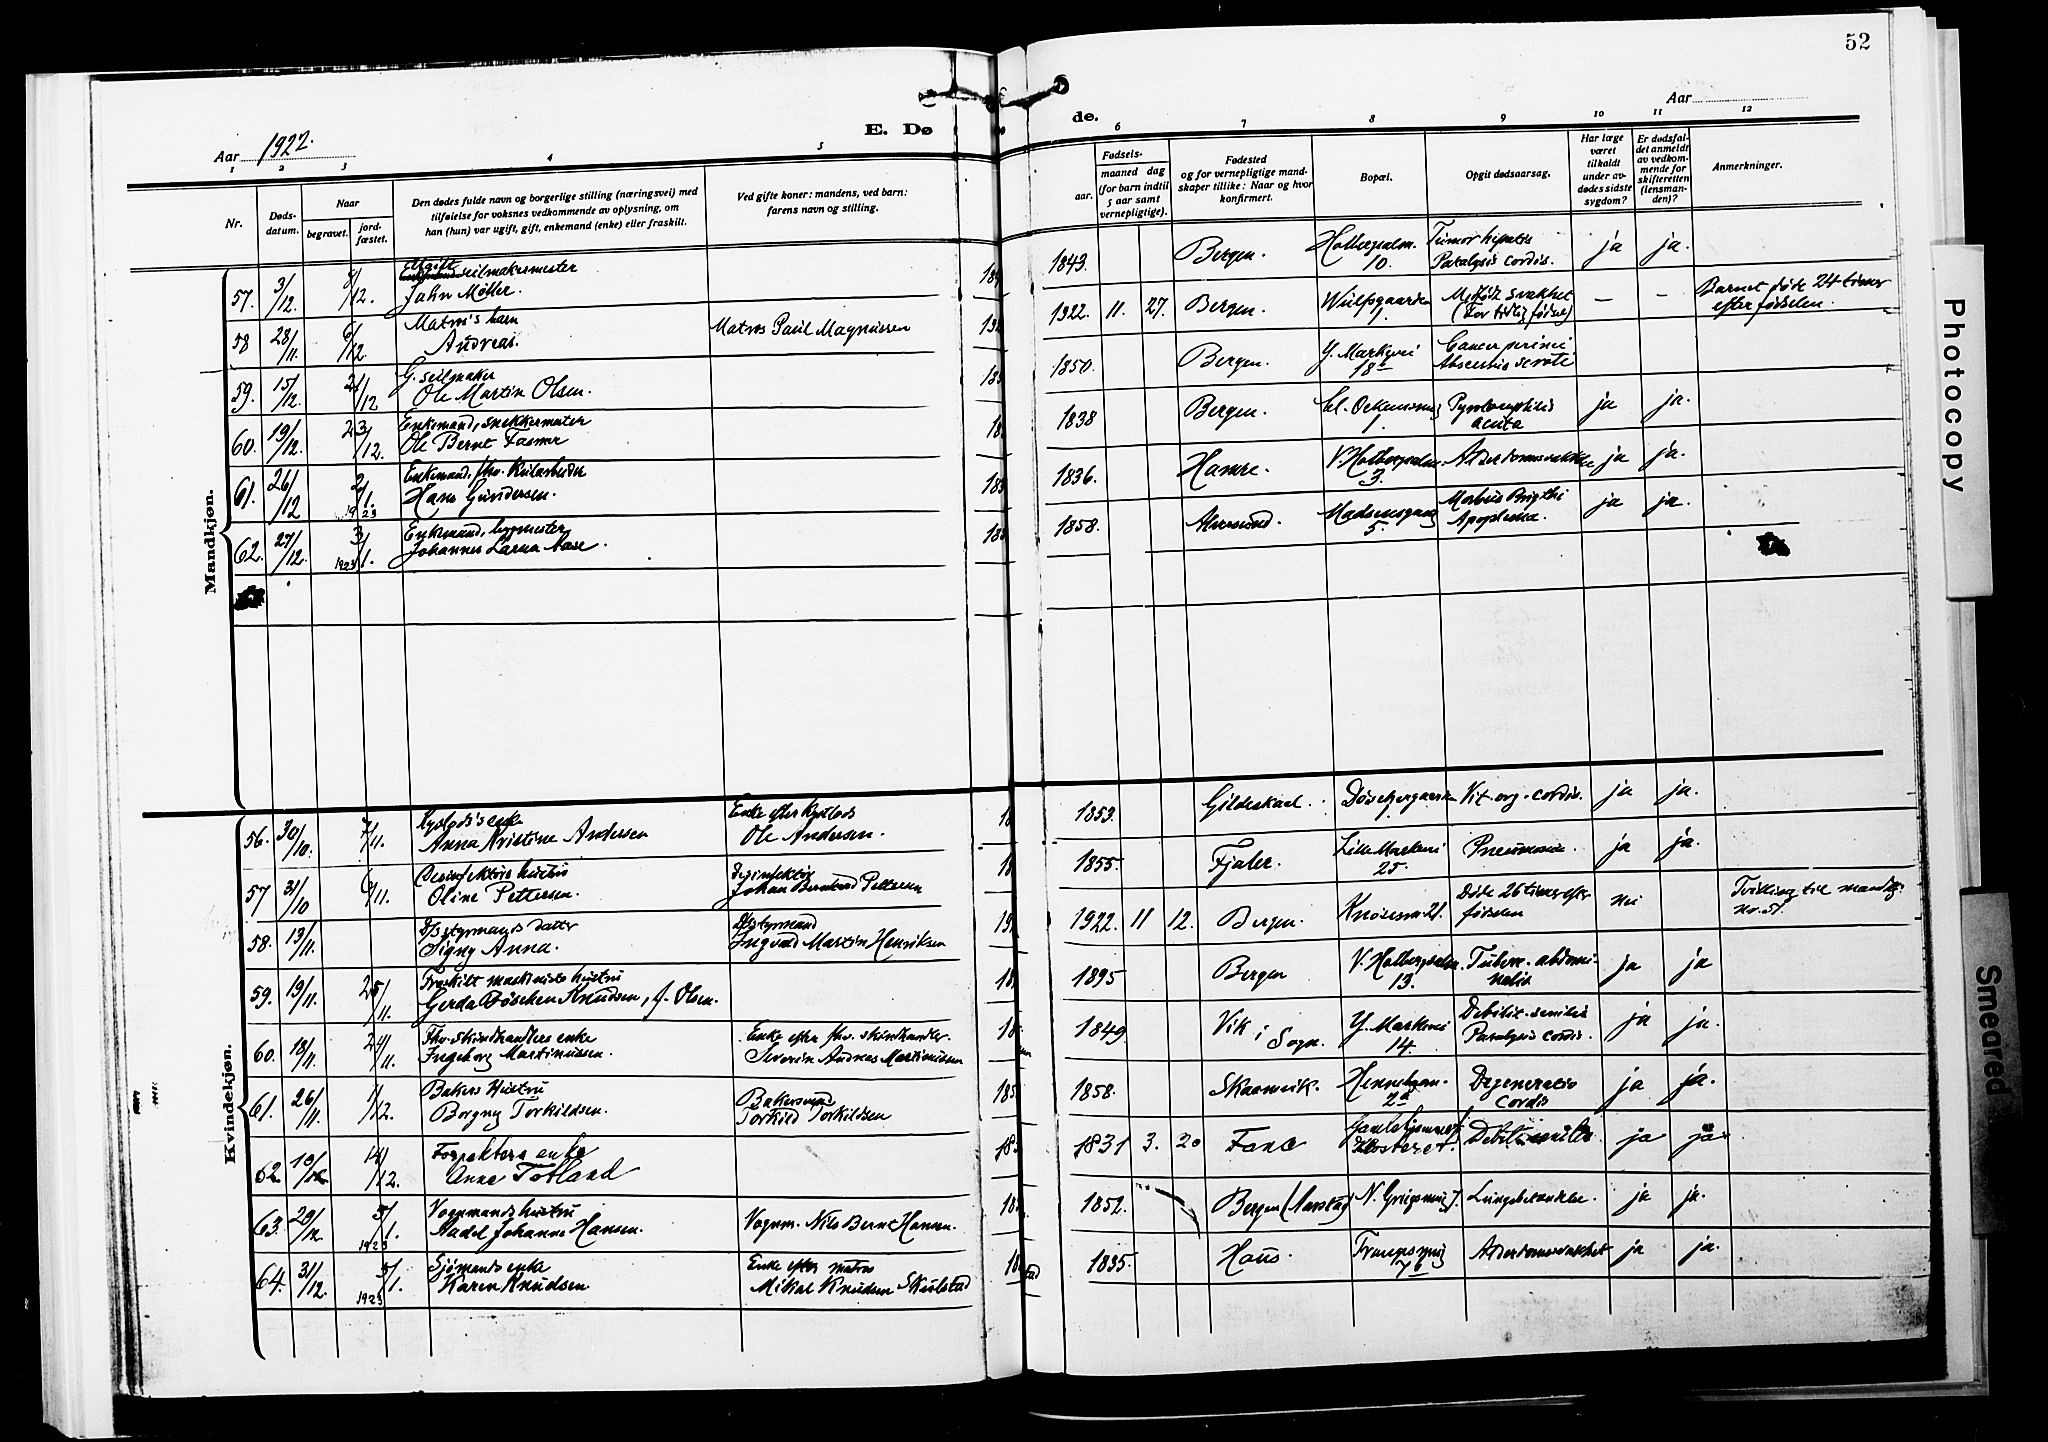 52
E. Dø
de.
Aar 1922.
Aar
1 2 3 4 5
6 7 8 9 10 11 12
Nr.
Døds-
datum.
Naar
begravet.
jord-
fæstet.
Den dødes fulde navn og borgerlige stilling (næringsvei) med
tilføielse for voksnes vedkommende av oplysning, om
han (hun) var ugift, gift, enkemand (enke) eller fraskilt.
Ved gifte koner: mandens, ved barn:
farens navn og stilling.
aar.
Fødsels-
maaned dag
(for barn indtil
5 aar samt
vernepligtige).
Fødested
og for vernepligtige mand-
skaper tillike: Naar og hvor
konfirmert.
Bopæl.
Opgit dødsaarsag.
Har læge
været
tilkaldt
under av-
dødes sidste
sygdom?
Er dødsfal-
det anmeldt
av vedkom-
mende for
skifteretten
(lensman-
den)?
Anmerkninger.
Mandkjøn.
57. 3/12. 8/12. Ugift seilmakermester
John Møller.
1843. Bergen. 10. Tumor hepatis
Paralysis cordis. ja ja.
58 28/11. 6/12 Matros's barn
Andreas.
Matros Paul Magnussen
1922. 11. 27. Bergen. Wulfsgaarden
1. Medfødt svakhet
(For tidlig fødsel) — — Barnet døde 24 timer
efter fødselen.
59. 15/12. 21/12 G. seilmaker
Ole Martin Olsen.
1850. Bergen. Y. Markevei
18b Cancer perinei
60. 19/12. 23/12. Enkemand, snekkermester
Ole Bernt Fasmer
1838 Bergen.
1. acuta ja ja.
61. 26/12 2/1. 1923 Enkemand, fhv.
Hans Gundersen.
1836. Hamre. V. Holbergsalm.
3. ja ja.
62. 27/12. 3/1. 1923 Enkemand,
Johannes
1858. Madsensgang
5. Morbus Brigthi
ja ja.
Kvindekjøn.
56. 30/10. 7/11. enke
Anna Kristine Andersen
Enke efter
Ole Andersen.
1853. Gildeskaal. Vit. org. cordis. ja ja.
57 31/10 6/11. Desinfektørs hustru
Oline Pettersen.
Desinfektør
Johan Bernhard Pettersen
1855. Fjaler. Lille Markevei
25. Pneumonie. ja ja.
58. 13/11. datter
Signy Anna.
Ingvald Martin Henriksen
1922. 11 12. Bergen. Knøsesm. 21. Døde 26 timer efter
fødselen nei Tvilling til mandkj.
no. 51.
59. 19/11. 25/11. Fraskilt maskinists hustru
Gerda Bøschen Knudsen, f. Olsen.
1895 Bergen V. Holbergsalm.
13. Tuberc. abdomi-
nalis ja ja
60. 18/11. 24/11. Fhv. skindhandlers enke
Ingeborg Martinussen.
Enke efter fhv. skindhandler
Severin Andreas Martinussen
1849 Vik i Sogn. Y. Markevei
14. Debilit. senilis
Paralysis cordis. ja ja.
61. 26/11. 1/12. Bakers Hustru
Borgny Torkildsen.
Bakersvend
Torkild Torkildsen
1858. Skaanevik.
2a Degeneratio
cordis ja ja.
62. 14/12. Forpakters enke
Anne Totland
1831 3. 20 Fane
Klosteret. ja ja
63. 29/12 5/1. 1923 Vognmands hustru
Aadel Johanne Hansen.
Vognm. Nils Bernt Hansen.
1852. Bergen (Aarstad) Lungebetændelse. ja ja.
64. 31/12. 5/1. 1923 Sjømands enke
Karen Knudsen.
Enke efter matros
Mikal Knudsen Skulstad
1835. Haus.
7b Alderdomssvakhet ja ja.
Photocopy
Smeared